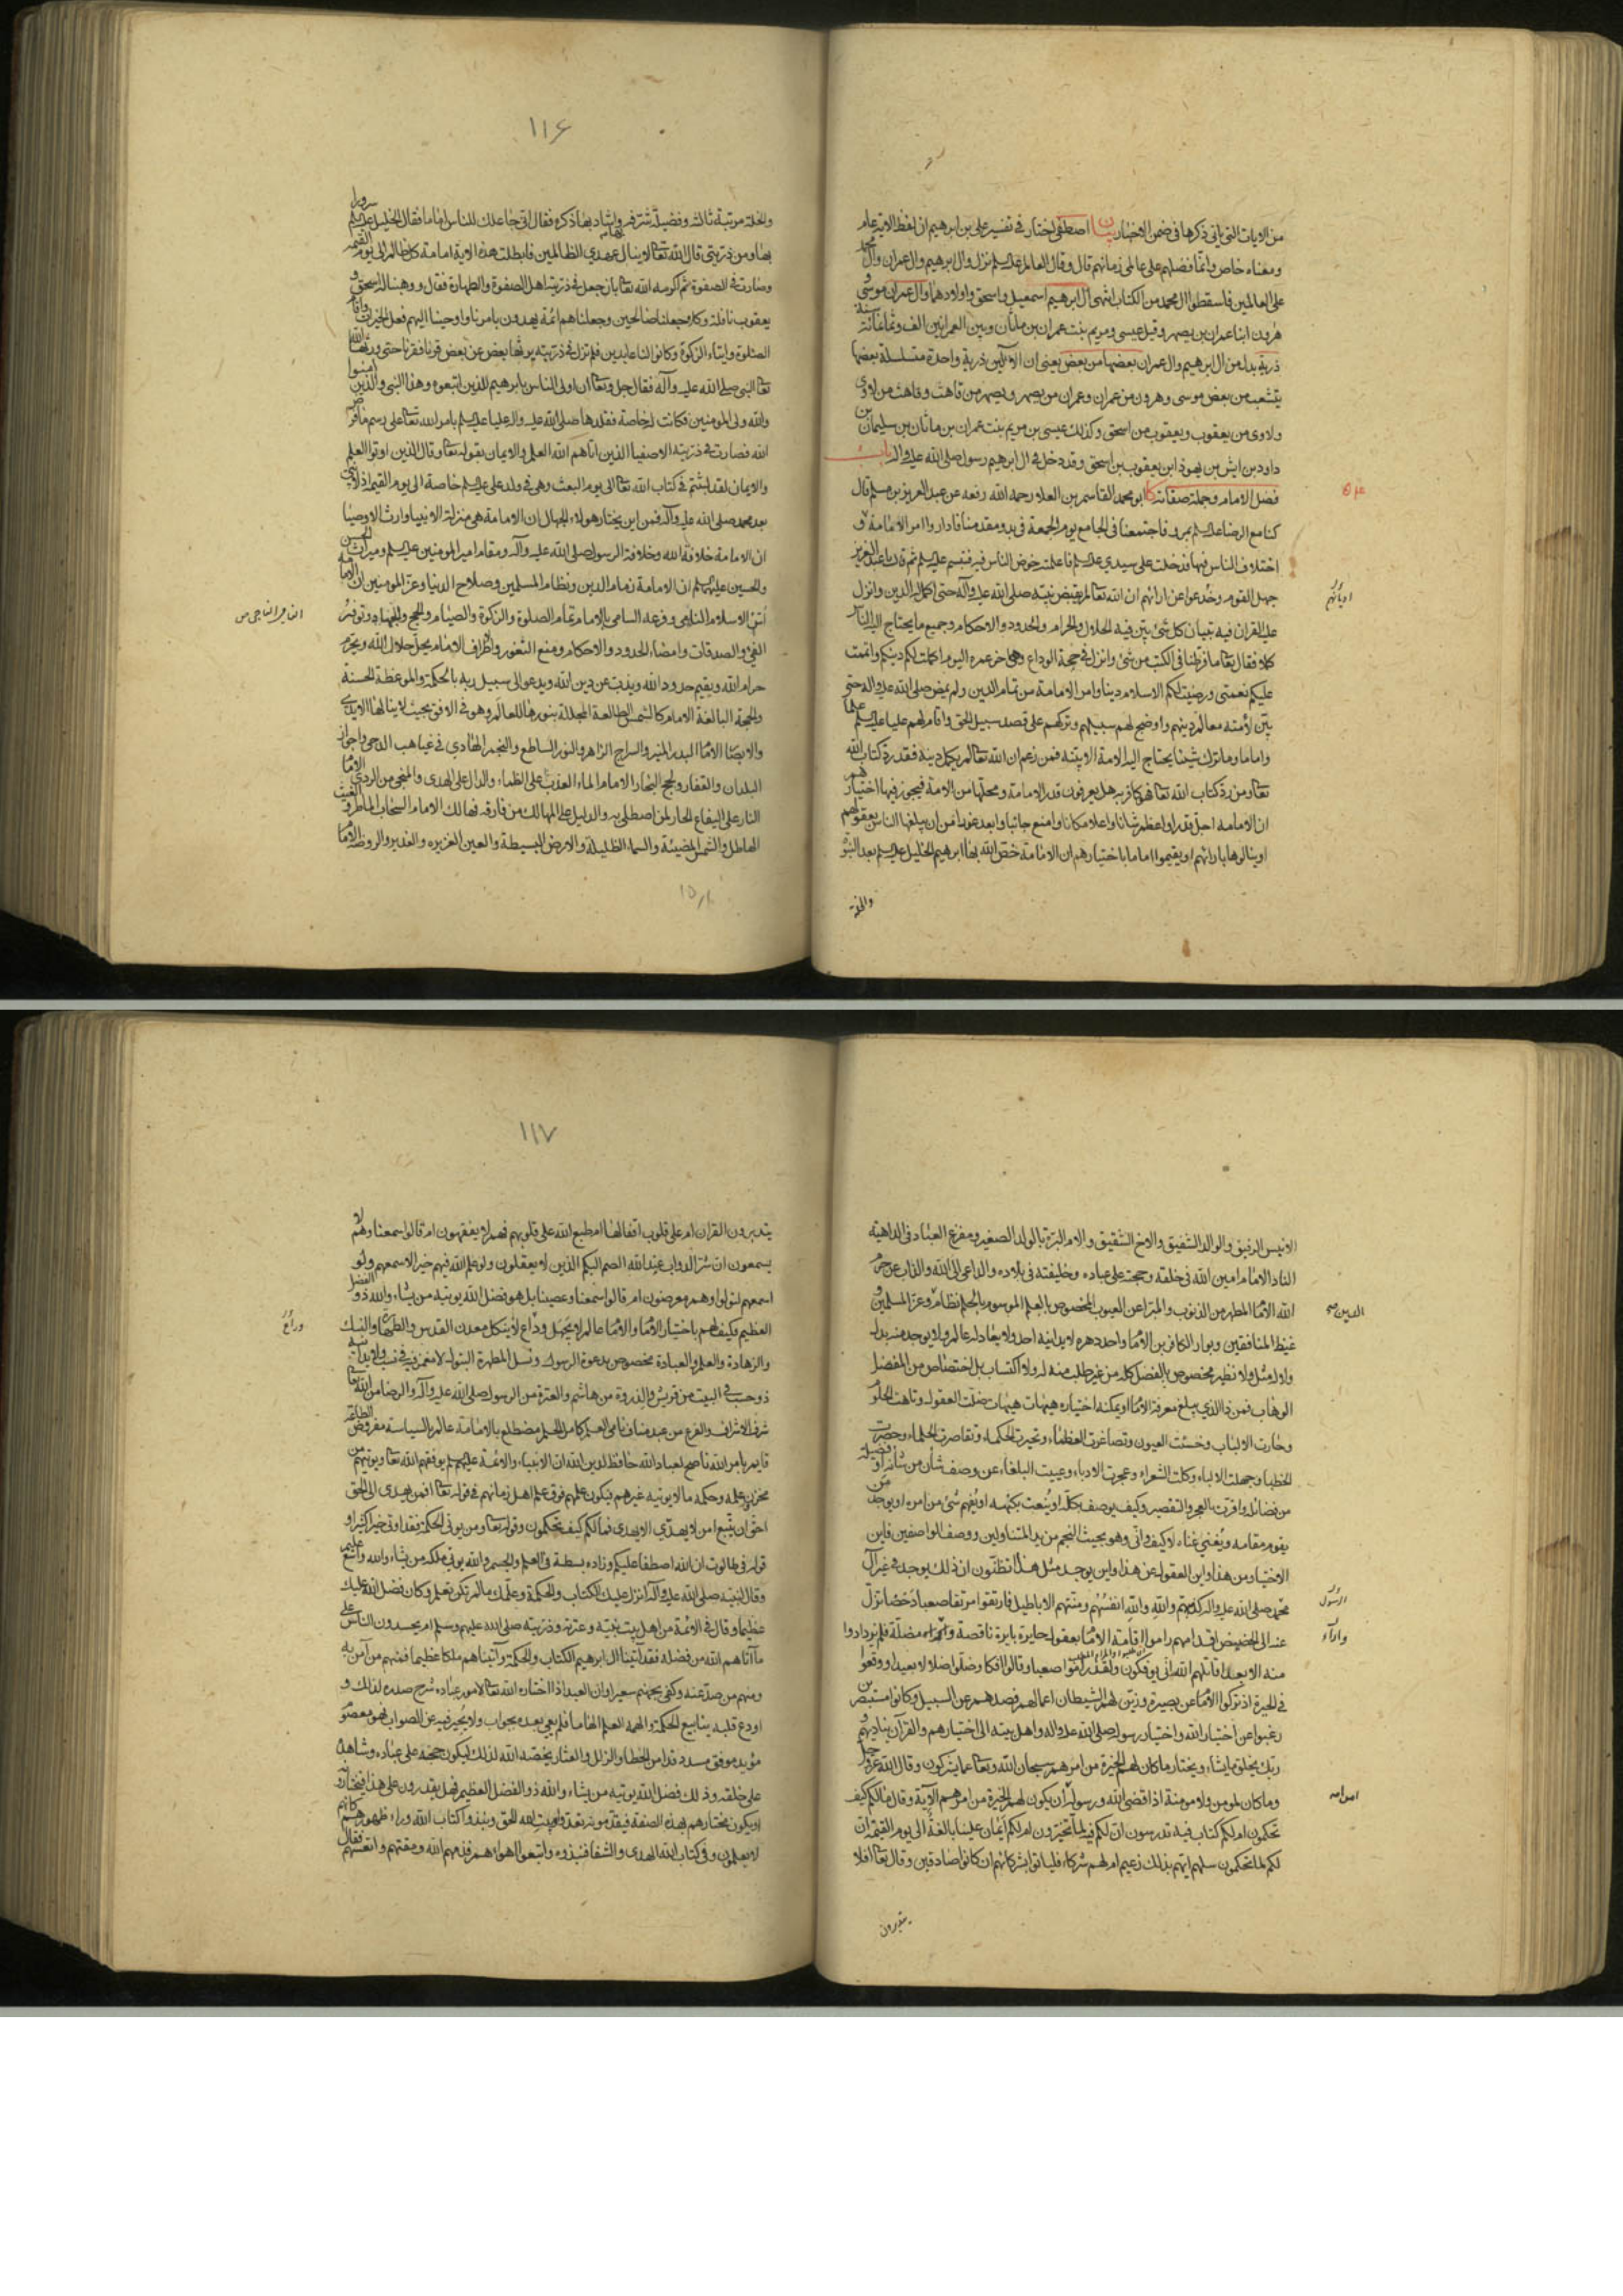 من الايات التي ياتي ذكرها في ضمن الاخبار بيان اصطفى اختار في تفسير علي بن ابرهيم ان لفظ الاية عام
ومعناه خاص وانما فضلهم على عالمي زمانهم قال وقال العالم عليه السلم نزل وال ابرهيم وال عمران وال محمد
على العالمين فاسقطوا ال محمد من الكتاب انتهى ال ابرهيم اسمعيل واسحق واولادهما وال عمران موسى و
هرون ابنا عمران بن يصهر وقيل عيسى ومريم بنت عمران بن ماثان وبين العمرانين الف وثمانمائة سنة
ذرية بدل من ال ابرهيم وال عمران بعضها من بعض يعني ان الالين ذرية واحدة متسلسلة بعضها
يتشعب من بعض موسى وهرون من عمران وعمران من يصهر ويصهر من قاهث وقاهث من لاوى
ولاوى من يعقوب ويعقوب من اسحق وكذلك عيسى بن مريم بنت عمران بن ماثان بن سليمان بن
داود بن ايش بن يهوذا بن يعقوب بن اسحق وقد دخل في ال ابرهيم رسول صلى الله عليه واله باب
فضل الامام وجملة صفاته كا ابو محمد القاسم بن العلا رحمه الله رفعه عن عبد العزيز بن مسلم قال
كنا مع الرضا عليه السلم بمرو فاجتمعنا في الجامع يوم الجمعة في بدو مقدمنا فاداروا امر الامامة و
اختلاف الناس فيها فدخلت على سيدي عليه السلم فاعلمته خوض الناس فيه فتبسم عليه السلم ثم قال يا عبد العزيز
جهل القوم وخدعوا عن ارائهم ان الله تعالى لم يقبض نبيه صلى الله عليه وآله حتى اكمل له الدين وانزل
اديانهم
عليه القران فيه تبيان كل شئ بين فيه الحلال والحرام والحدود والاحكام وجميع ما يحتاج اليه الناس
كملا فقال تعالى ما فرطنا في الكتب من شئ وانزل في حجة الوداع وهي اخر عمره اليوم اكملت لكم دينكم واتممت
عليكم نعمتي ورضيت لكم الاسلام دينا وامر الامامة من تمام الدين ولم يمض صلى الله عليه واله حتى
بين لامته معالم دينهم واوضح لهم سبيلهم وتركهم على قصد سبيل الحق واقام لهم عليا عليه السلم علما
واماما وما ترك شيئا يحتاج اليه الامة الا بينه فمن زعم ان الله تعالى لم يكمل دينه فقد رد كتاب الله
تعالى ومن رد كتاب الله تعالى فهو كافر به هل يعرفون قدر الامامة ومحلها من الامة فيجوز فيها اختيارهم
ان الامامة اجل قدرا واعظم شانا واعلا مكانا وامنع جانبا وابعد غورا من ان يبلغها الناس بعقولهم
او ينالوها بارائهم او يقيموا اماما باختيارهم ان الامامة خص الله بها ابرهيم الخليل عليه السلم بعد النبوة
والخلة
١١٦
والخلة مرتبة ثالثة وفضيلة شرفه بها واشاد بها ذكره فقال اني جاعلك للناس اماما فقال الخليل عليه السلم سرورا
بها ومن ذريتي قال الله تعالى لا ينال عهدي الظالمين فابطلت هذه الاية امامة كل ظالم الى يوم القيمة
وصارت في الصفوة ثم اكرمه الله تعالى بان جعل في ذريته اهل الصفوة والطهارة فقال ووهبنا له اسحق و
يعقوب نافلة وكلا جعلنا صالحين وجعلناهم ائمة يهدون بامرنا واوحينا اليهم فعل الخيرات واقام
الصلوة وايتاء الزكوة وكانوا لنا عابدين فلم تزل في ذريته يرثها بعض عن بعض قرنا فقرنا حتى ورثها الله
تعالى النبي صلى الله عليه وآله فقال جل وتعالى ان اولى الناس بابرهيم للذين اتبعوه وهذا النبي والذين امنوا
والله ولي المؤمنين فكانت له خاصة فقلدها صلى الله عليه واله عليا عليه السلم بامر الله تعالى على رسم ما فرض
الله فصارت في ذريته الاصفيا الذين اتاهم الله العلم والايمان بقوله تعالى وقال الذين اوتوا العلم
والايمان لقد لبثتم في كتاب الله تعالى الى يوم البعث وهي في ولد علي عليه السلم خاصة الى يوم القيمة اذ لا نبي
بعد محمد صلى الله عليه وآله فمن اين يختار هولاء الجهال ان الامامة هي منزلة الانبياء وارث الاوصيا
ان الامامة خلافة الله وخلافة الرسول صلى الله عليه وآله ومقام امير المومنين عليه السلم وميراث الحسن
والحسين عليهما السلم ان الامامة زمام الدين ونظام المسلمين وصلاح الدنيا وعز المومنين ان الامامة
اس الاسلام النامي وفرعه السامي بالامام تمام الصلوة والزكوة والصيام والحج والجهاد وتوفير
الفئ والصدقات وامضاء الحدود والاحكام ومنع الثغور والاطراف الامام يحل حلال الله ويحرم
حرام الله ويقيم حدود الله ويذب عن دين الله ويدعو الى سبيل ربه بالحكمة والموعظة الحسنة
والحجة البالغة الامام كالشمس الطالعة المجللة بنورها للعالم وهو في الافق بحيث لا ينالها الايدي
والابصار الامام البدر المنير والسراج الزاهر والنور الساطع والنجم الهادي في غياهب الدجى واجواز
البلدان والقفار ولجج البحار الامام الماء العذب على الظماء والدال على الهدى والمنجي من الردى الامام
النار على اليفاع الحار لمن اصطلى به والدليل في المهالك من فارقه فهالك الامام السحاب الماطر والغيث
الهاطل والشمس المضيئة والسماء الظليلة والارض البسيطة والعين الغزيرة والغدير والروضة الامام
الانيس الرفيق والوالد الشفيق والاخ الشقيق والام البرة بالولد الصغير ومفزع العباد في الداهية
الناد الامام امين الله في خلقه وحجته على عباده وخليفته في بلاده والداعي الى الله والذاب عن حرم
الله الامام المطهر من الذنوب والمبرا عن العيوب المخصوص بالعلم الموسوم بالحلم نظام وعز المسلمين و
الدين صح
غيظ المنافقين وبوار الكافرين الامام واحد دهره لا يدانيه احد ولا يعادله عالم ولا يوجد منه بدل
ولا له مثل ولا نظير مخصوص بالفضل كله من غير طلب منه له ولا اكتساب بل اختصاص من المفضل
الوهاب فمن ذا الذي يبلغ معرفة الامام او يمكنه اختياره هيهات هيهات ضلت العقول وتاهت الحلوم
وحارت الالباب وخسئت العيون وتصاغرت العظماء وتحيرت الحكماء وتقاصرت الحلماء وحصرت
الخطبا وجهلت الالباء وكلت الشعراء وعجزت الادباء وعييت البلغاء عن وصف شأن من شأنه او فضيلة
من فضائله واقرت بالعجز والتقصير وكيف يوصف بكله او ينعت بكنهه او يفهم شئ من امره او يوجد من
يقوم مقامه ويغني غناه لا كيف وانى وهو بحيث النجم من يد المتناولين ووصف الواصفين فاين
الاختيار من هذا واين العقول عن هذا واين يوجد مثل هذا اتظنون ان ذلك يوجد في غير آل
محمد صلى الله عليه واله كذبتهم والله انفسهم ومنتهم الاباطيل فارتقوا مرتقا صعبا دحضا تزل
الرسول
عنه الى الحضيض اقدامهم راموا اقامة الامام بعقول حايرة بايرة ناقصة وآراء مضلة فلم يزدادوا
واراء
منه الا بعدا قاتلهم الله انى يوفكون ولقد راموا صعبا وقالوا افكا وضلوا ضلالا بعيدا ووقعوا
في الحيرة اذ تركوا الامام عن بصيرة وزين لهم الشيطان اعمالهم فصدهم عن السبيل وكانوا مستبصرين
رغبوا عن اختيار الله واختيار رسول صلى الله عليه واله واهل بيته الى اختيارهم والقرآن يناديهم و
ربك يخلق ما يشاء ويختار ما كان لهم الخيرة من امرهم سبحان الله وتعالى عما يشركون وقال الله عز وجل
وما كان لمومن ولا مومنة اذا قضى الله ورسوله امرا ان يكون لهم الخيرة من امرهم الآية وقال ما لكم كيف
تحكمون ام لكم كتاب فيه تدرسون ان لكم فيه لما تخيرون ام لكم ايمان علينا بالغة الى يوم القيمة ان
لكم لما تحكمون سلهم ايهم بذلك زعيم ام لهم شركاء فليأتوا بشركائهم ان كانوا صادقين وقال تعالى افلا
يتدبرون
١١٧
يتدبرون القران ام على قلوب اقفالها ام طبع الله على قلوبهم فهم لا يفقهون ام قالوا سمعنا وهم لا
يسمعون ان شر الدواب عند الله الصم البكم الذين لا يعقلون ولو علم الله فيهم خيرا لاسمعهم ولو
اسمعهم لتولوا وهم معرضون ام قالوا سمعنا وعصينا بل هو فضل الله يوتيه من يشاء والله ذو الفضل
العظيم فكيف لهم باختيار الامام والامام عالم لا يجهل وداع لا ينكل معدن القدس والطهارة والنسك
وراع
والزهادة والعلم والعبادة مخصوص بدعوة الرسول ونسل المطهرة البتول لا مغمز فيه في نسب ولا يدانيه
ذو حسب في البيت من قريش والذروة من هاشم والعترة من الرسول صلى الله عليه وآله والرضا من الله تعالى
شرف الاشراف والفرع من عبد مناف نامي العلم كامل الحلم مضطلع بالامامة عالم بالسياسة مفروض الطاعة
قايم بامر الله ناصح لعباد الله حافظ لدين الله ان الانبياء والائمة عليهم السلم يوفقهم الله تعالى ويوتيهم من
مخزون علمه وحكمه ما لا يوتيه غيرهم فيكون علمهم فوق علم اهل زمانهم في قوله تعالى افمن يهدي الى الحق
احق ان يتبع امن لا يهدي الا يهدى فما لكم كيف تحكمون وقوله تعالى ومن يوتى الحكمة فقد اوتي خيرا كثيرا و
قوله في طالوت ان الله اصطفاه عليكم وزاده بسطة في العلم والجسم والله يوتي ملكه من يشاء والله واسع عليم
وقال لنبيه صلى الله عليه وآله انزل عليك الكتاب والحكمة وعلمك ما لم تكن تعلم وكان فضل الله عليك
عظيما وقال في الائمة من اهل بيت نبيه وعترته وذريته صلى الله عليهم وسلم ام يحسدون الناس على
ما آتاهم الله من فضله فقد آتينا ال ابرهيم الكتاب والحكمة وآتيناهم ملكا عظيما فمنهم من آمن به
ومنهم من صد عنه وكفى بجهنم سعيرا وان العبد اذا اختاره الله تعالى لامور عباده شرح صدره لذلك و
اودع قلبه ينابيع الحكمة والهمه العلم الهاما فلم يعي بعده بجواب ولا يحير فيه عن الصواب فهو معصوم
مؤيد موفق مسدد قد امن الخطا والزلل والعثار يخصه الله لذلك ليكون حجته على عباده وشاهده
على خلقه وذلك فضل الله يوتيه من يشاء والله ذو الفضل العظيم فهل يقدرون على هذا فيختارونه
او يكون مختارهم بهذه الصفة فيقدمونه تعدوا وبيت الله الحق ونبذوا كتاب الله وراء ظهورهم كانهم
لا يعلمون وفي كتاب الله الهدى والشفا فنبذوه واتبعوا اهواءهم فذمهم الله ومقتهم واتعسهم فقال